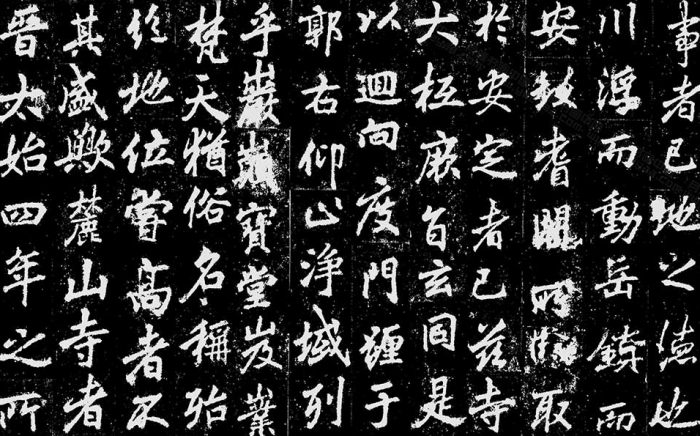 事者已地之德也
川浮而動岳鎮而
安故耆闍所取
於安定者已茲寺
大抵厥旨玄同是
以迴向度門躔于
郭右仰止淨域列
乎巖巔寶堂岌嶪
梵天猶俗名稱殆
絕地位嘗高者不
其盛歟麓山寺者
晉太始四年之所